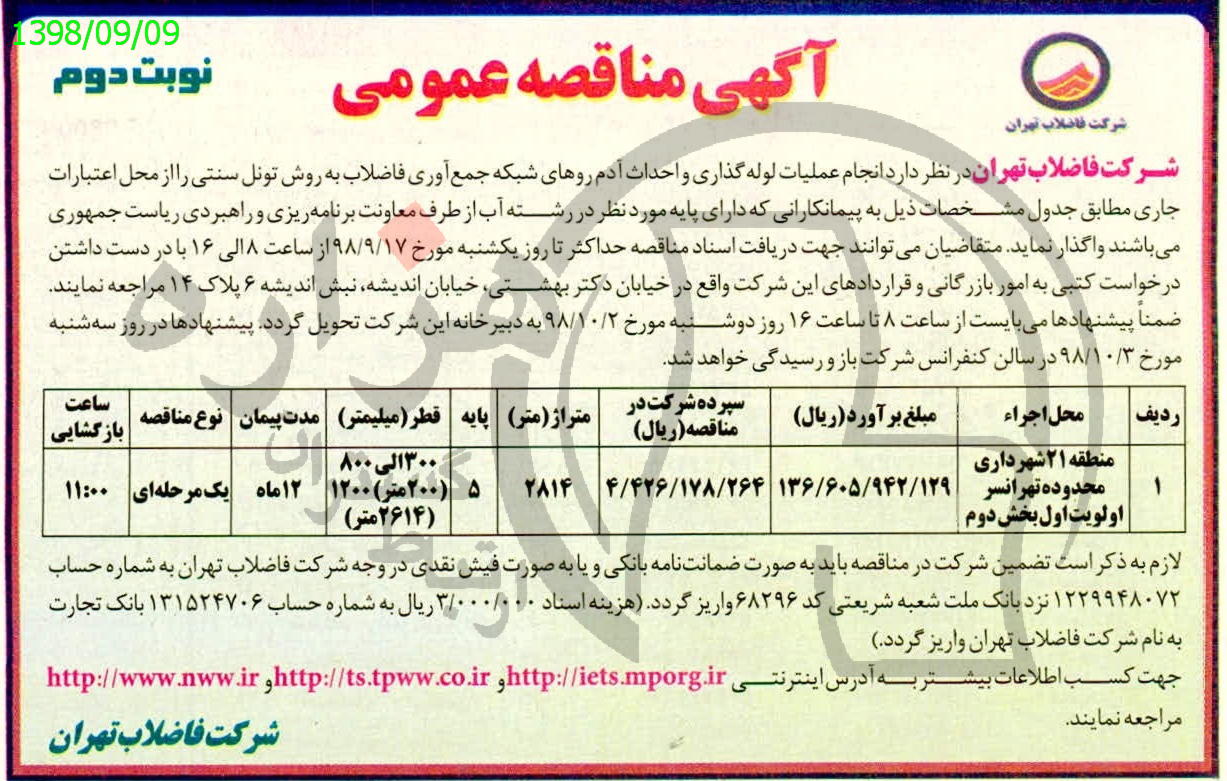 1398/09/09
آگهی مناقصه عمومی
نوبت دوم
شرکت فاضلاب تهران
شرکت فاضلاب تهران در نظر دارد انجام عملیات لوله گذاری و احداث آدم روهای شبکه جمع آوری فاضلاب به روش تونل سنتی را از محل اعتبارات
جاری مطابق جدول مشخصات ذیل به پیمانکارانی که دارای پایه مورد نظر در رشته آب از طرف معاونت برنامه ریزی و راهبردی ریاست جمهوری
می باشند واگذار نماید. متقاضیان می توانند جهت دریافت اسناد مناقصه حداکثر تا روز یکشنبه مورخ ۹۸/۹/۱۷ از ساعت ۸ الی ۱۶ با در دست داشتن
درخواست کتبی به امور بازرگانی و قراردادهای این شرکت واقع در خیابان دکتر بهشتی، خیابان اندیشه، نبش اندیشه ۶ پلاک ۱۴ مراجعه نمایند.
ضمناً پیشنهادها می بایست از ساعت ۸ تا ساعت ۱۶ روز دوشنبه مورخ ۹۸/۱۰/۲ به دبیرخانه این شرکت تحویل گردد. پیشنهادها در روز سه شنبه
مورخ ۹۸/۱۰/۳ در سالن کنفرانس شرکت باز و رسیدگی خواهد شد.
ردیف محل اجراء مبلغ برآورد (ریال) سپرده شرکت در مناقصه (ریال) متراژ (متر) پایه قطر (میلیمتر) مدت پیمان نوع مناقصه ساعت بازگشایی
۱ منطقه ۲۱ شهرداری محدوده تهرانسر اولویت اول بخش دوم ۱۳۶/۶۰۵/۹۴۲/۱۲۹ ۴/۴۲۶/۱۷۸/۲۶۴ ۲۸۱۴ ۵ ۳۰۰ الی ۸۰۰ (۲۰۰ متر) ۱۲۰۰ (۲۶۱۴ متر) ۱۲ ماه یک مرحله ای ۱۱:۰۰
لازم به ذکر است تضمین شرکت در مناقصه باید به صورت ضمانت نامه بانکی و یا به صورت فیش نقدی در وجه شرکت فاضلاب تهران به شماره حساب
۱۲۲۹۹۴۸۰۷۲ نزد بانک ملت شعبه شریعتی کد ۶۸۲۹۶ واریز گردد. (هزینه اسناد ۳/۰۰۰/۰۰۰ ریال به شماره حساب ۱۳۱۵۲۴۷۰۶ بانک تجارت
به نام شرکت فاضلاب تهران واریز گردد.)
جهت کسب اطلاعات بیشتر به آدرس اینترنتی http://iets.mporg.ir و http://ts.tpww.co.ir و http://www.nww.ir
مراجعه نمایند.
شرکت فاضلاب تهران
هزاره
گستران
ارتباط